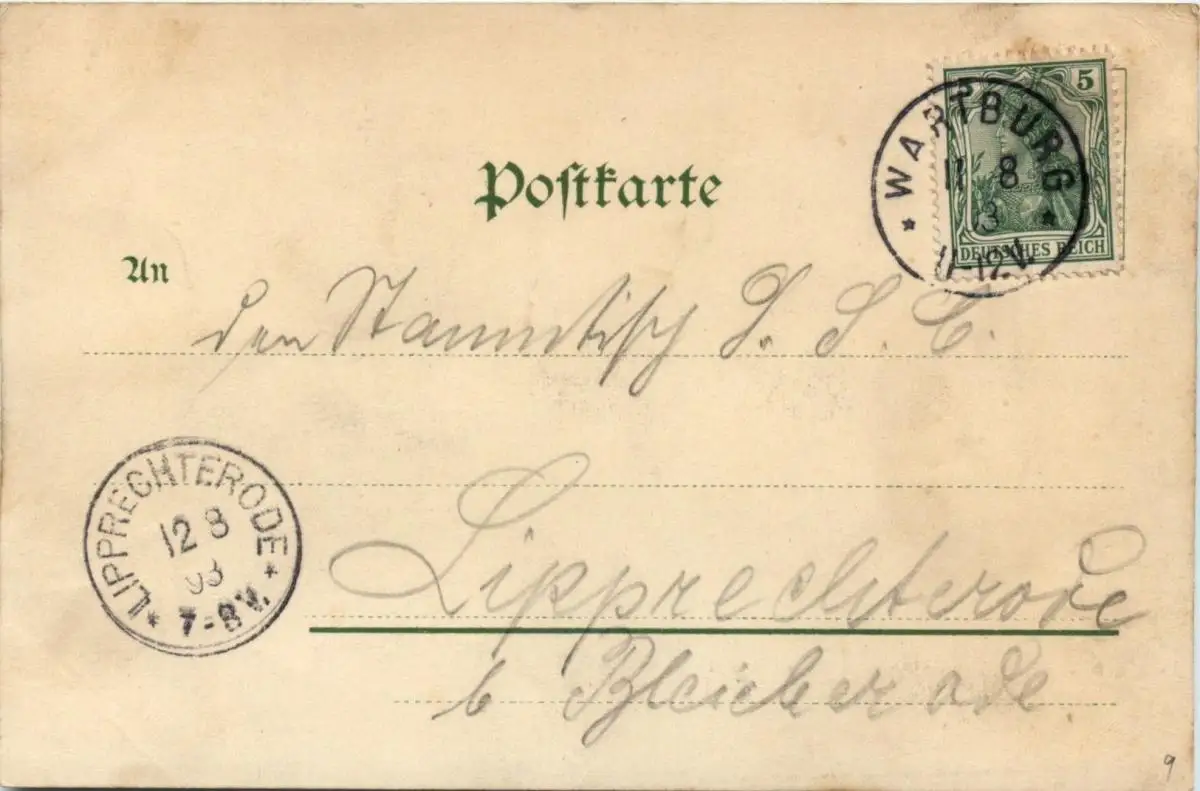 5
WARTBURG
11 8
3
11-12.V.
DEUTSCHES REICH
Postkarte
An
den Stammtisch S. S. C.
LIPPRECHTERODE
12 8
03
7-8V.
Lipprechterode
b Bleicherode.
9